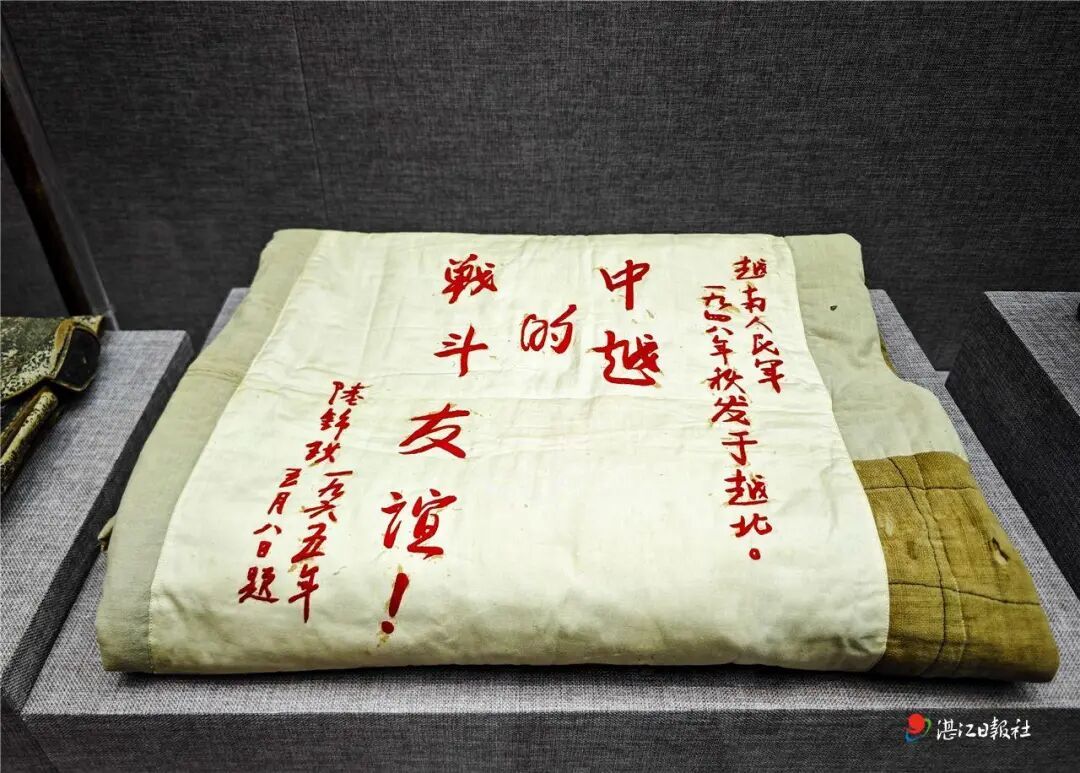 越南人民軍
一九四八年秋发于越北。
中越
的
战斗友谊！
陸錦 一九六五年
三月八日题
湛江日報社